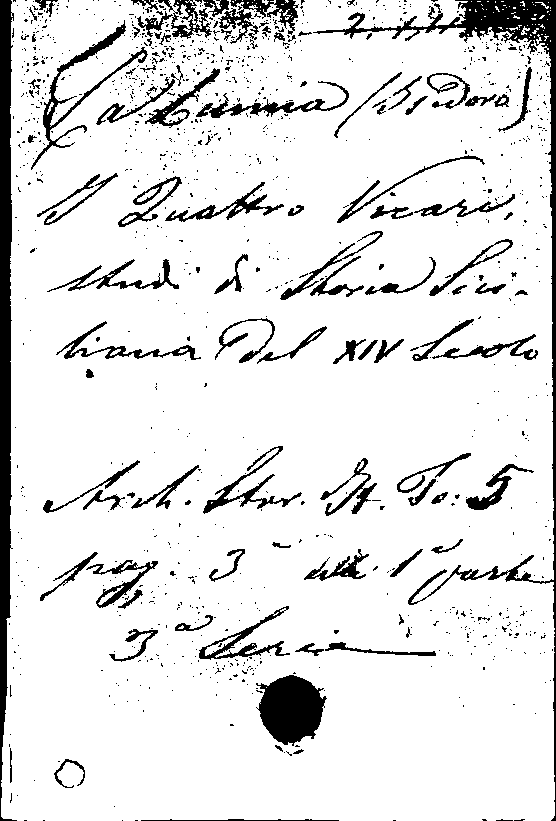 La Lumia (Isidoro)
I Quattro Vicari,
studi di Storia Sici-
liana del XIV Secolo
Arch. Stor. It. To: 5
pag. 3 della 1ª parte
3ª Seria